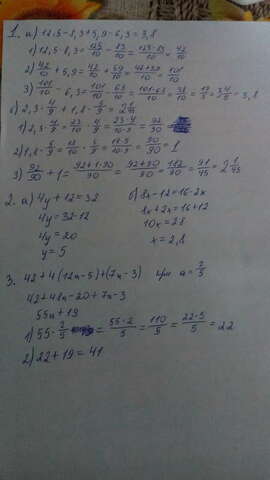 1. а) 12,5-8,3+5,9-6,3=3,8
1) 12,5-8,3=125/10-83/10=(125-83)/10=42/10
2) 42/10+5,9=42/10+59/10=(42+59)/10=101/10
3) 101/10-6,3=101/10-63/10=(101-63)/10=38/10=19/5=3 4/5=3,8
1) 2,3·4/9=23/10·4/9=(23·4)/(10·9)=92/90
3) 92/90+1=(92+1·90)/90=(92+90)/90=182/90=91/45=2 1/45
2. а) 4y+12=32
4y=32-12
4y=20
y=5
б) 8x-12=16-2x
8x+2x=16+12
10x=28
x=2,8
3. 42+4(12a-5)+(7a-3) при a=2/5
42+48a-20+7a-3
55a+19
1) 55·2/5=(55·2)/5=110/5=(22·5)/5=22
2) 22+19=41